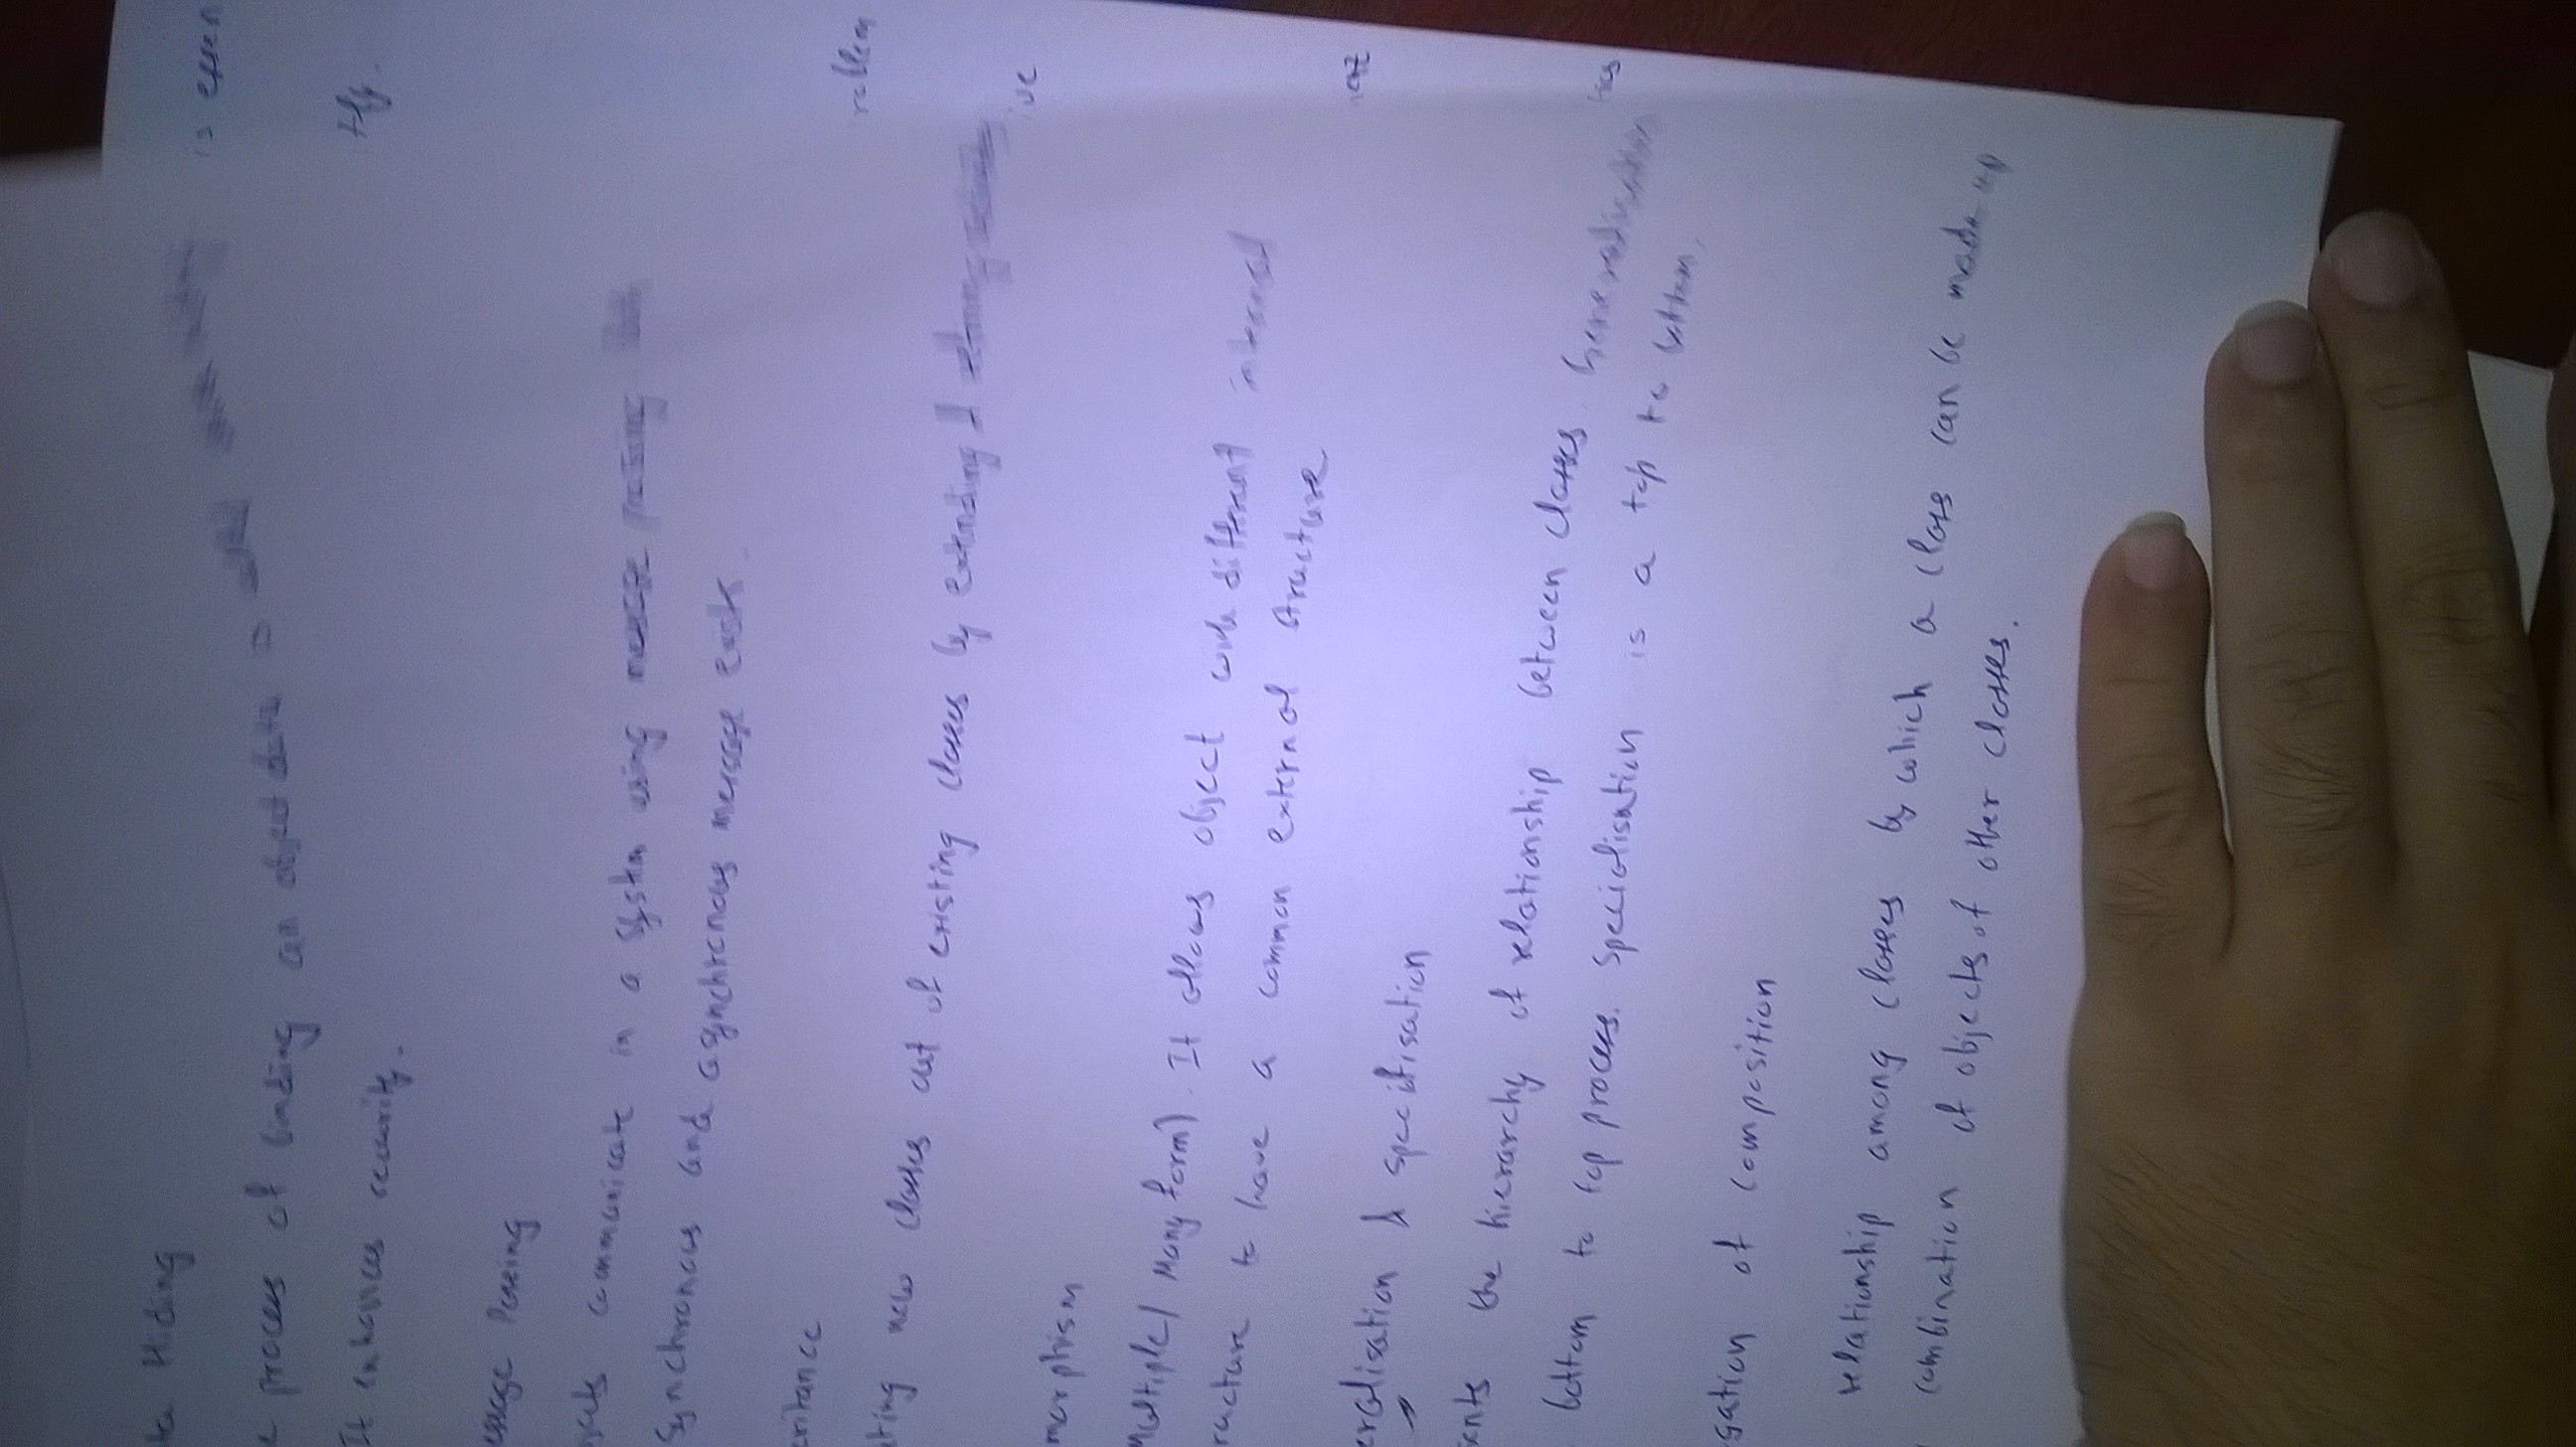 ta Hiding
e process of binding an object data is called data hiding
It enhances security.
essage Passing
jects communicate in a system using message passing
Synchronous and asynchronous message exists.
eritance
ating new classes out of existing classes by extending &
morphism
Multiple/ Many form). It allows object with different internal
ructure to have a common external structure
eralisation & specifisation
sents the hierarchy of relationship between classes. Generalisation
bottom to top process. Specialisation is a top to bottom.
gation of composition
relationship among classes by which a class can be made up
combination of objects of other classes.
is essen
roblem
ive